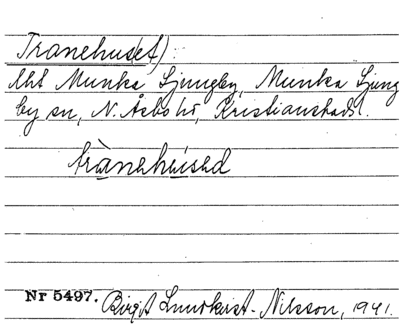 Tranehuset):
lht Munka Ljungby, Munka Ljung
by sn, N. Åsbo hd, Kristianstads l.
trànehúsed
Nr 5497. Birgit Lundkvist-Nilsson, 1941.